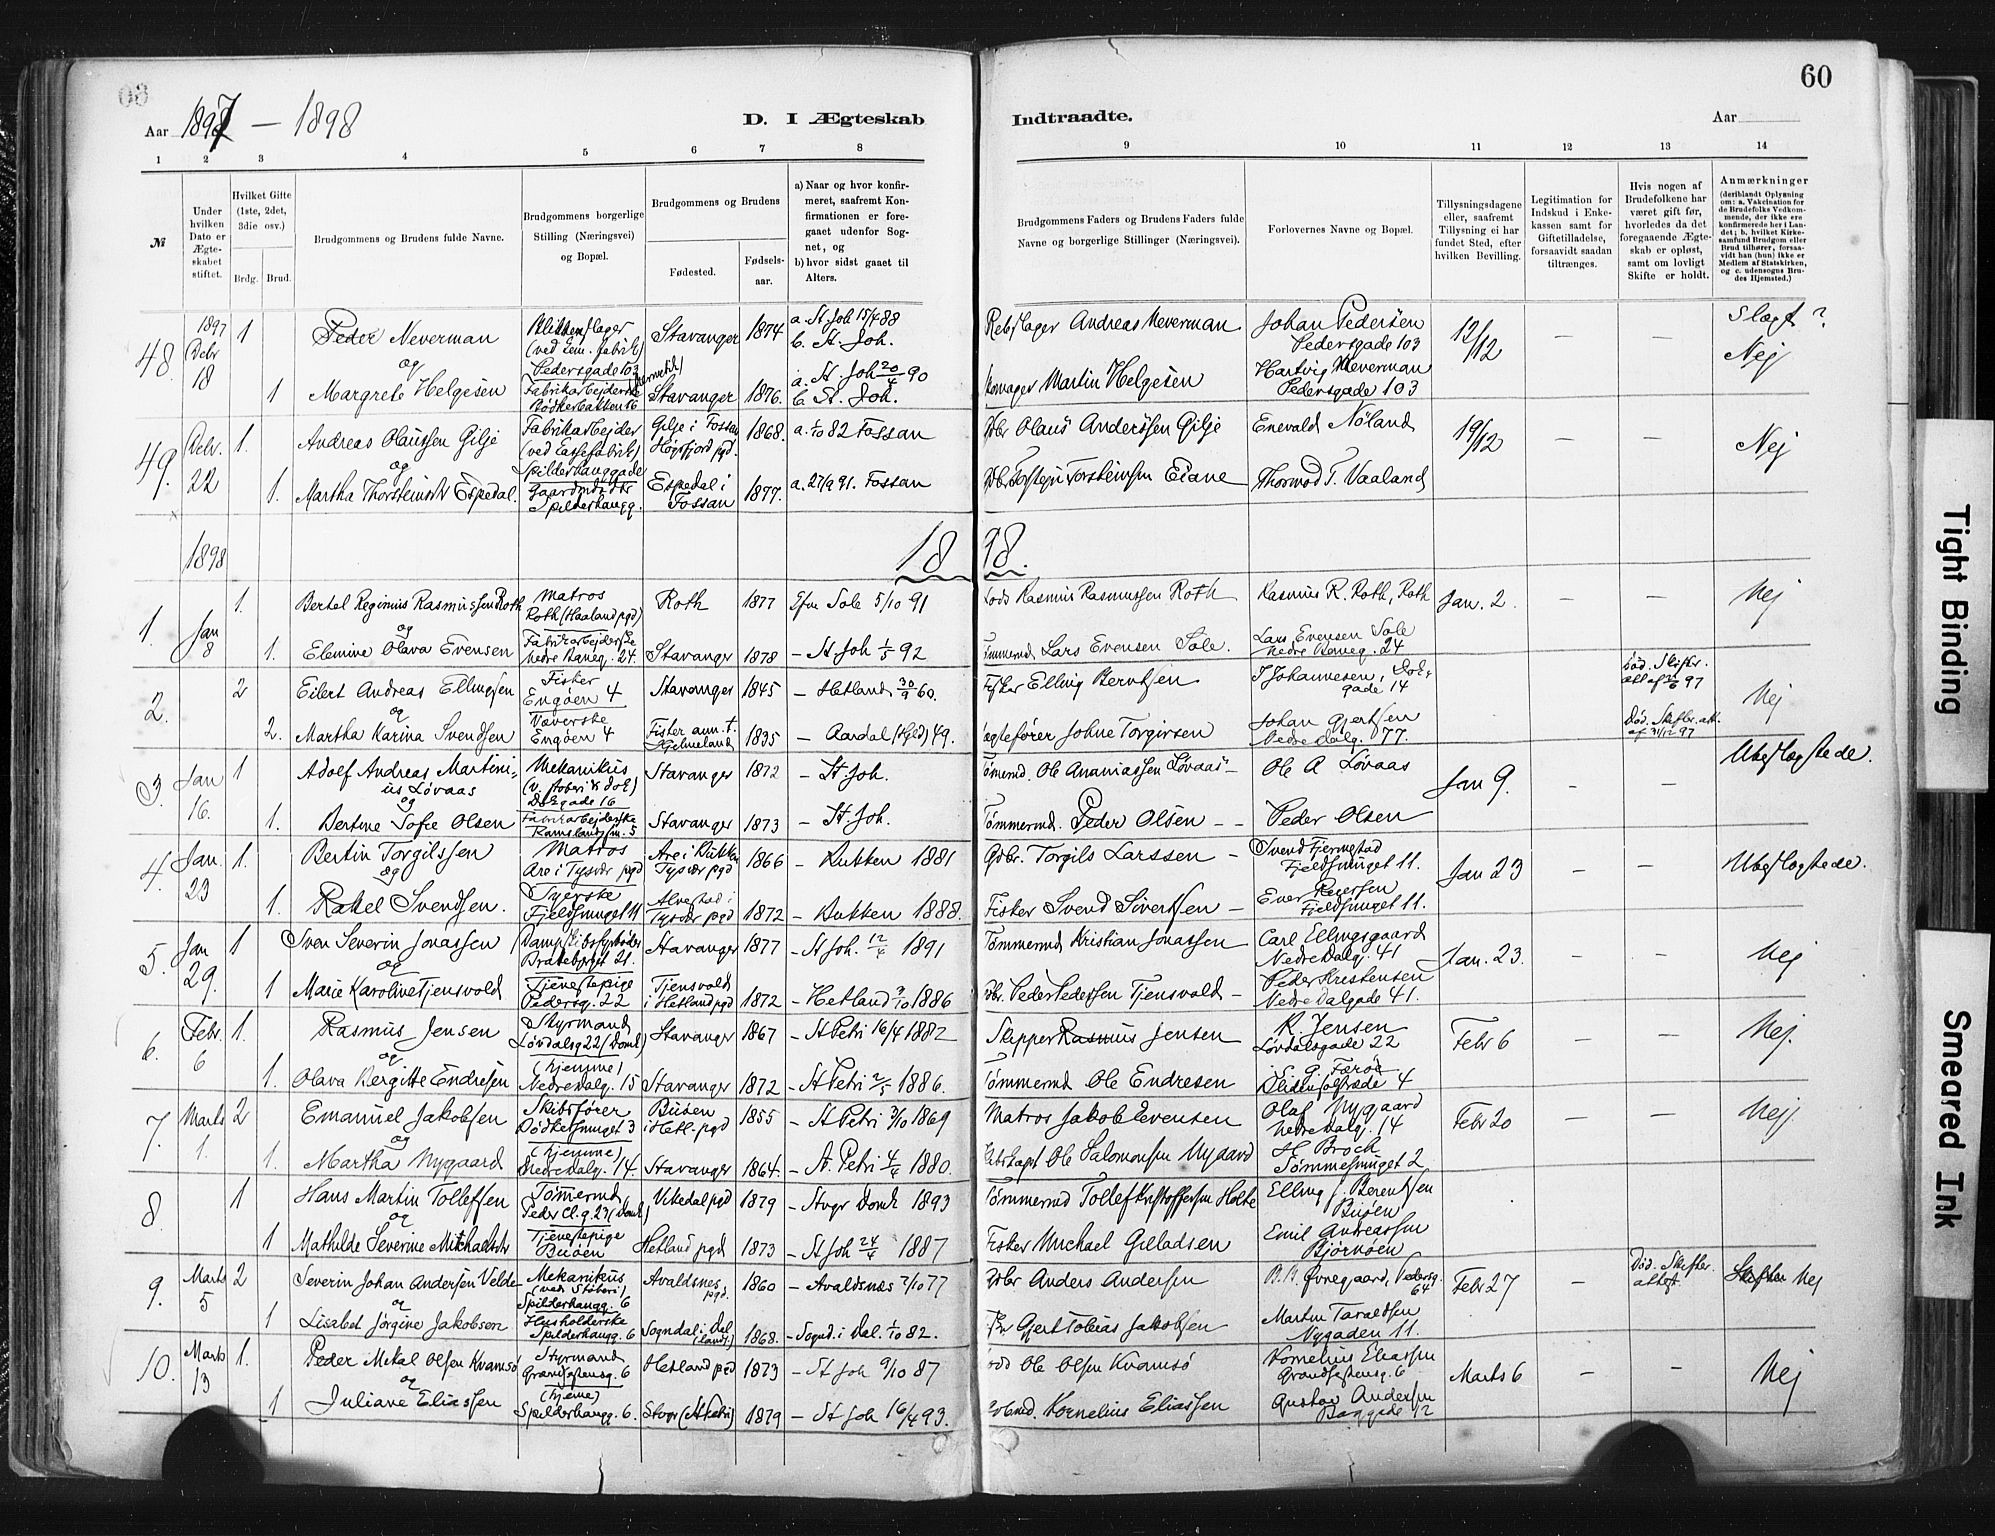 60
Aar 1897 — 1898
D. I Ægteskab Indtraadte.
Aar
1 2 3 4 5 6 7 8 9 10 11 12 13 14
№
Under hvilken Dato er Ægteskabet stiftet.
Hvilket Gifte (1ste, 2det, 3die osv.)
Brdg. Brud.
Brudgommens og Brudens fulde Navne.
Brudgommens borgerlige Stilling (Næringsvei) og Bopæl.
Brudgommens og Brudens
Fødested.
Fødselsaar.
a) Naar og hvor konfirmeret, saafremt Konfirmationen er foregaaet udenfor Sognet, og
b) hvor sidst gaaet til Alters.
Brudgommens Faders og Brudens Faders fulde Navne og borgerlige Stillinger (Næringsvei).
Forlovernes Navne og Bopæl.
Tillysningsdagene eller, saafremt Tillysning ei har fundet Sted, efter hvilken Bevilling.
Legitimation for Indskud i Enkekassen samt for Giftetilladelse, forsaavidt saadan tiltrænges.
Hvis nogen af Brudefolkene har været gift før, hvorledes da det foregaaende Ægteskab er opløst, samt om lovligt Skifte er holdt.
Anmærkninger
(deriblandt Oplysning om: a. Vakcination for de Brudefolks Vedkommende, der ikke ere konfirmerede her i Landet; b. hvilket Kirkesamfund Brudgom eller Brud tilhører, forsaavidt han (hun) ikke er Medlem af Statskirken, og c. udensogns Brudes Hjemsted.)
48. 1897 Debr 18 1 Peder Neverman Stavanger 1874 a. St. Joh 15/4 88 b. St. Joh. Andreas Neverman Johan Pedersen Pedersgade 103 12/12 — — Slægt? Nej
og
1 Margrete Helgesen Stavanger 1876. a. St. Joh 20/4 90 b. St. Joh. Martin Helgesen Hartvig Neverman Pedersgade 103
49. Debr. 22 1. Andreas Olaussen Gilje Fabrikarbejder Gilje i Fossan Høgsfjord pgd. 1868. a. 1/10 82 Fossan Olaus Anderssen Gilje Enevald Nøland 19/12 — — Nej
og
1. Martha Espedal. Spilderhaugg. Espedal i Fossan 1877. a. 27/9 91. Fossan Torsteinsen Eiane Thormod T. Vaaland
1898
1898.
1. Jan 8 1. Bertel Reginius Rasmussen Roth Matros Roth (Haaland pgd) Roth 1877 Sole 5/10 91 Rasmus Rasmussen Roth Rasmus R. Roth, Roth Jan. 2. — — Nej
og
1. Elemine Olava Evensen Nedre Baneg. 24. Stavanger 1878 — St Joh 1/5 92 Lars Evensen Sole. Lars Evensen Sole Nedre Baneg. 24
2. 2 Eilert Andreas Ellingsen Fisker Engøen 4 Stavanger 1845 — Hetland 30/9 60. Fisker Elling Berntsen J Johannesen, gade 14 Nej
og
2. Martha Karina Svendsen Væverske Engøen 4 Fister ann. t. Hjelmeland 1835 — Aardal 49. Johne Torgirsen Johan Gjertsen Nedre Dalg. 77.
3. Jan 16. 1 Adolf Andreas Martinius Løvaas Mekanikus Stavanger 1872 — St. Joh. Tømmermd. Ole Ananiassen Løvaas — Ole A Løvaas Jan 9. — — Ubeslægtede.
og
1. Bertine Sofie Olsen Fabrikarbejderske Stavanger 1873 — St. Joh. Tømmermd. Peder Olsen — — Peder Olsen
4. Jan. 23 1. Bertin Torgilssen Matros Are i Tysvær pgd 1866 — Bukken 1881 Gdbr. Torgils Larssen — Jan 23 — — Ubeslægtede.
og
1. Rakel Svendsen. Syerske Alvestad i Tysvær pgd 1872 — Bukken 1888. Fisker Svend Sivertsen —
5. Jan 29. 1 Sven Severin Jonassen Stavanger 1877 — St Joh. 12/4 1891 Tømmermd Kristian Jonassen Carl Ellingsgaard Nedre Dalg. 41 Jan. 23. — — Nej
og
1 Marie Karoline Tjensvold Tjenestepige Pedersg. 22 Tjensvold i Hetland pgd 1872 — Hetland 1886 Peder Pedersen Tjensvold — Peder Kristensen Nedre Dalgade 41.
6. Febr. 6 1. Rasmus Jensen Styrmand Løvdalsg 22 (Domk) Stavanger 1867 — St Petri 16/4 1882 Skipper Rasmus Jensen R. Jensen Løvdalsgade 22 Febr 6 — — Nej.
og
1. Olava Bergitte Endresen (hjemme) Nedre Dalg. 15 Stavanger 1872 — St Petri 2/5 1886. Tømmermd Ole Endresen
7. Marts 1. 2 Emanuel Jakobsen Skibsfører Bødkersmuget 3 Buøen i Hetl. pgd 1855 — St Petri 3/10 1869 Matros Jakob Evensen Olaf Nygaard Nedre Dalg. 14 Febr 20 — — Nej.
og
1. Martha Nygaard (hjemme) Nedre Dalg. 14. Stavanger 1864. — St. Petri 4/4 1880. Ole Salomonsen Nygaard H. Broch
8. 1 Hans Martin Tollefsen Tømmermd Vikedal pgd 1879 — Stvgr Domk 1893 Tømmermd Tollef Kristoffersen Holte Elling J. Berentsen Buøen
og
1 Mathilde Severine Michaelsdtr Tjenestepige Buøen Hetland pgd 1873 — St Joh 24/4 1887 Fisker Michael Giladsen Emil Andreassen Bjørnøen
9. Marts 5 2 Severin Johan Andersen Velde Mekanikus (ved Støberi) Spilderhaugg. 6 Avaldsnes pgd. 1860 — Avaldsnes 7/10 77 Gdbr Anders Andersen B. B. Øvregaard, Pedersg. 64 Febr 27 — Død. Skifter. attest Nej
og
1 Lisabet Jørgine Jakobsen Husholderske Spilderhaugg. 6 Sogndal i Dalland 1868. — Sognd. i Dal. 1/10 82. Gjert Tobias Jakobsen Martin Taraldsen Nygaden 11.
10. Marts 13 1. Peder Mekal Olsen Kvamsø Styrmand Hetland pgd 1873 — St Joh 9/10 87 Ole Olsen Kvamsø Kornelius Eliassen Marts 6 — — Nej
og
1 Juliane Eliassen (hjeme) Spilderhaugg. 6. Stvgr (St Petri) 1879 — St Joh 16/4 93. Kornelius Eliassen Gustav Andersen
Tight Binding
Smeared Ink